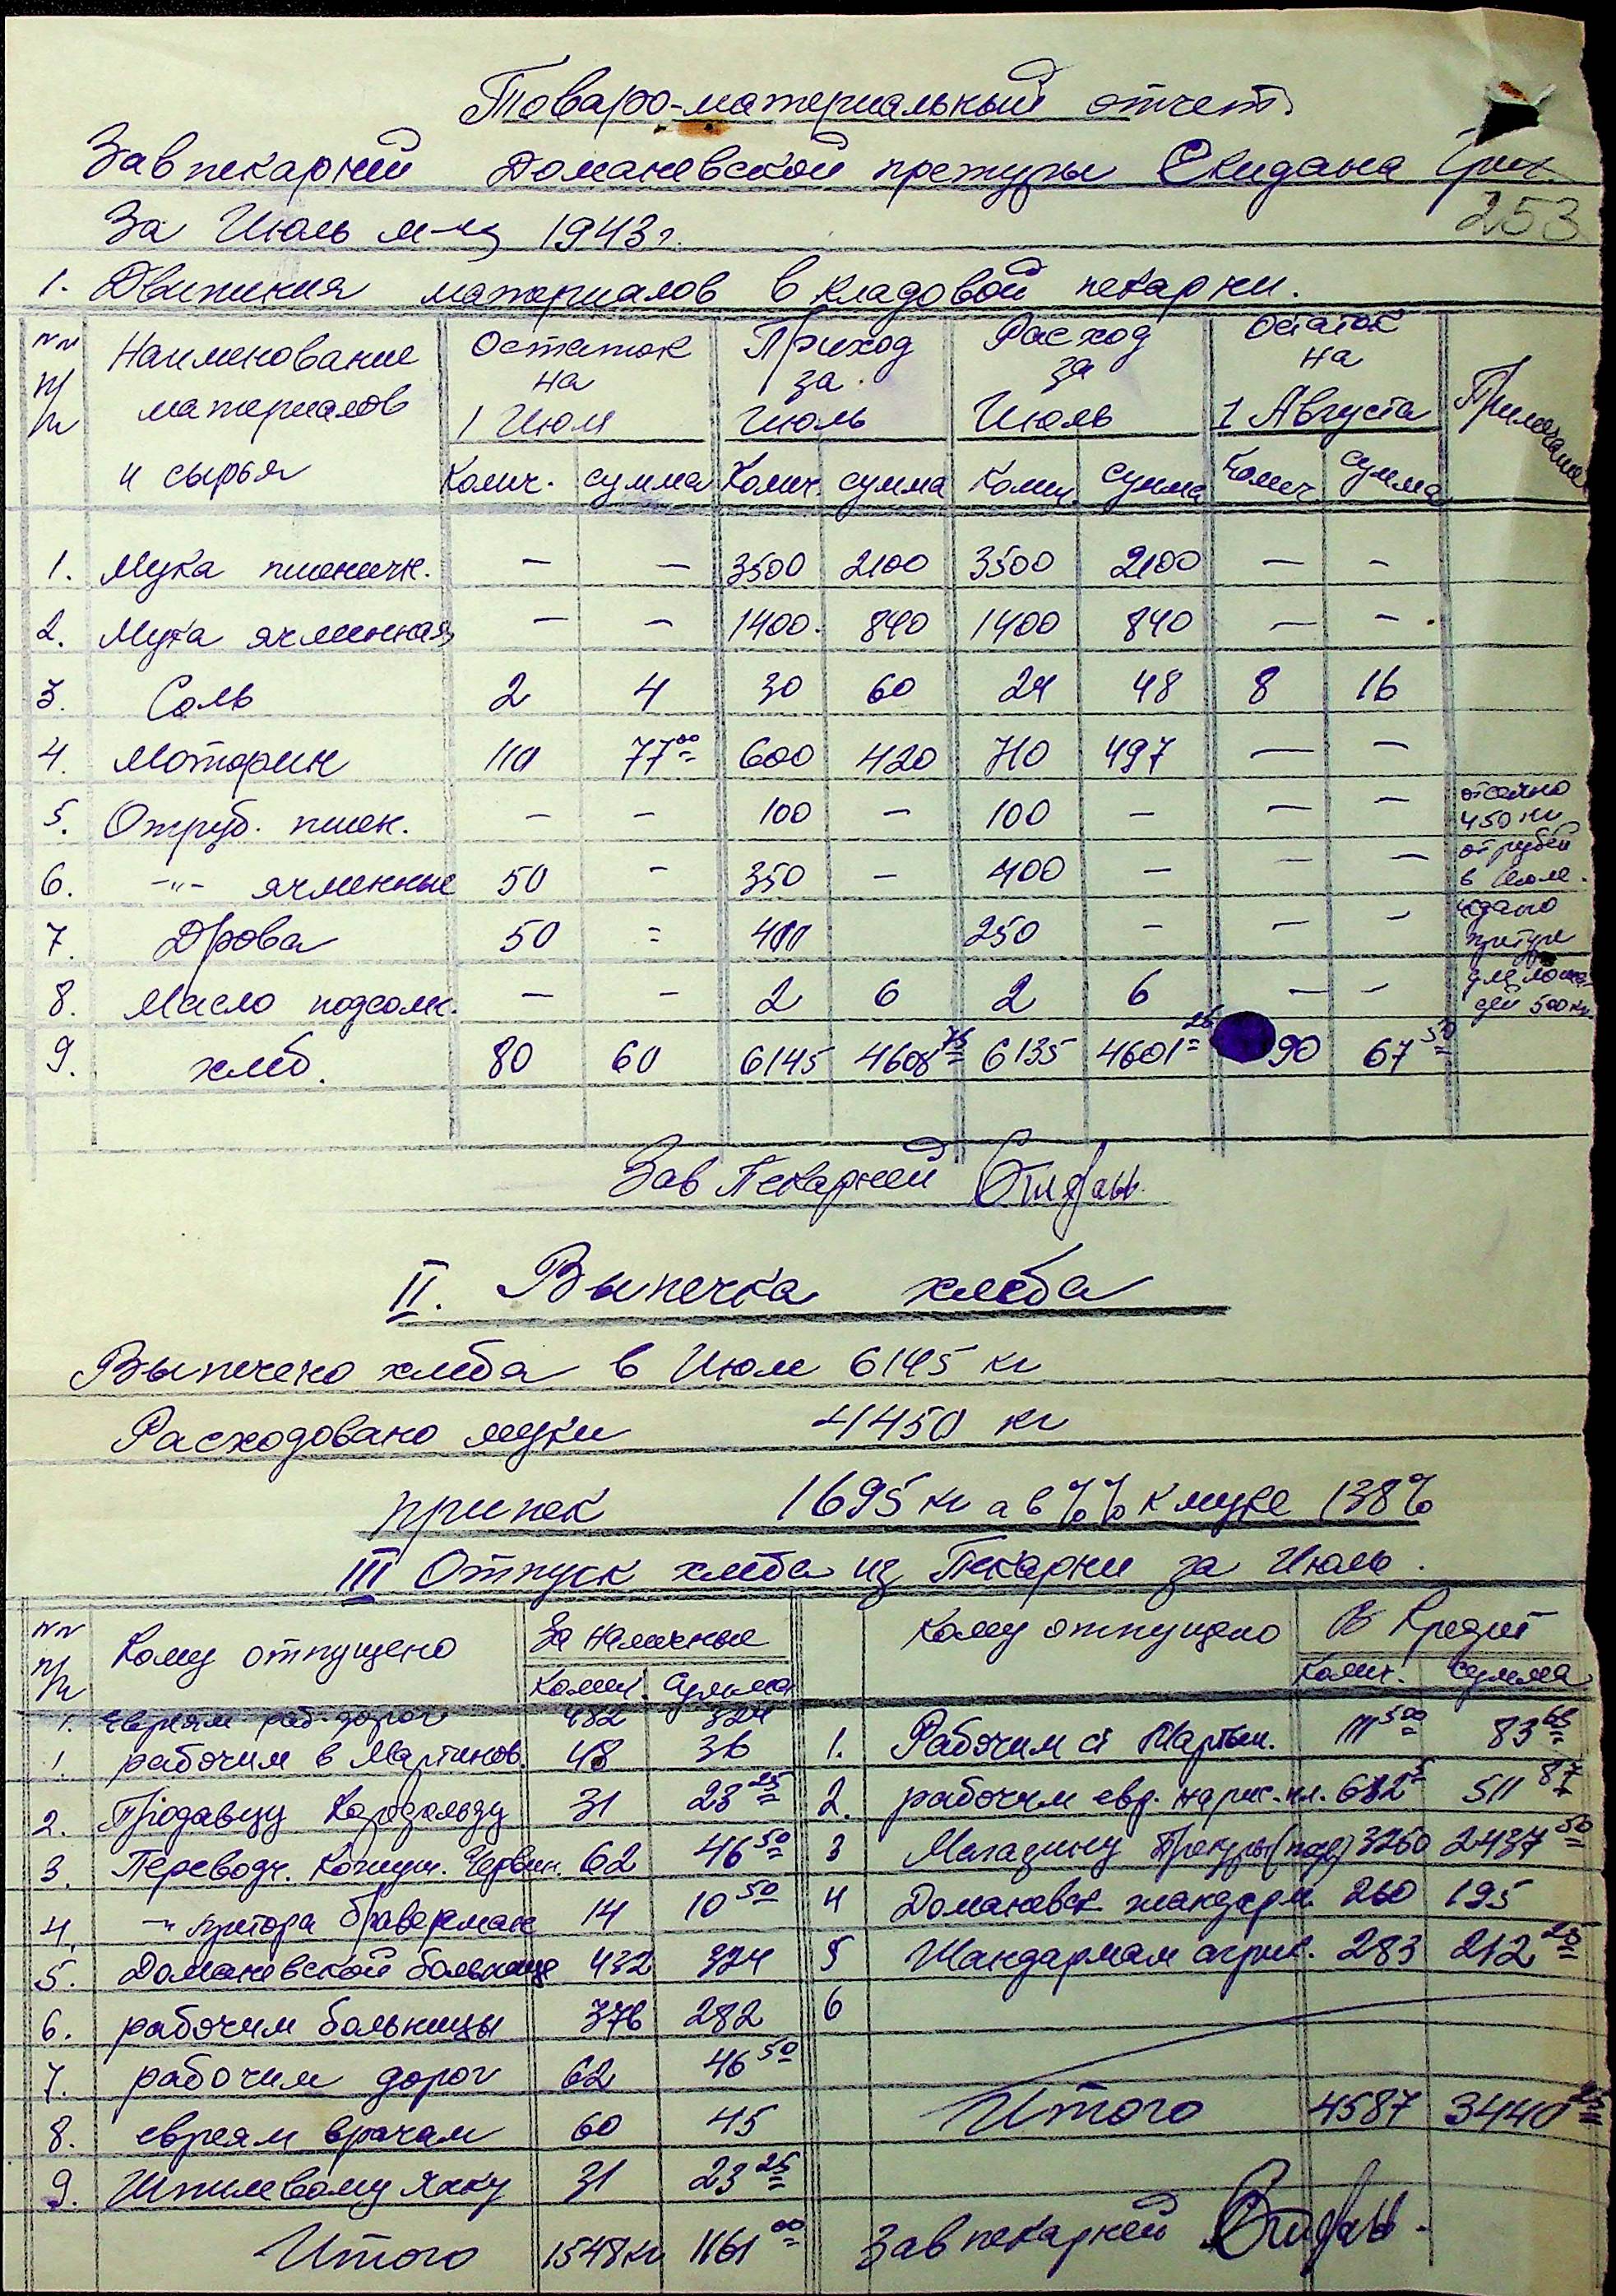 Товаро-материальный отчет
Завпекарней Доманевской претуры Скидана Григ.
253
За Июль м-ц 1943 г.
1. Движения материалов в кладовой пекарни.
№№ п/п Наименование материалов и сырья Остаток на 1 Июля Приход за Июль Расход за Июль Остаток на 1 Августа Примечание
Колич. сумма Колич. сумма Колич. сумма Колич. сумма
1. Мука пшеничн. — — 3500 2100 3500 2100 — —
2. Мука ячменная — — 1400 840 1400 840 — —
3. Соль 2 4 30 60 24 48 8 16
4. Моторин 110 77 00 600 420 710 497 — —
5. Отруб. пшен. — — 100 — 100 — — — отсеяно 450 кг
6. -"- ячменные 50 - 350 — 400 — — — отрубей в Июле.
7. Дрова 50 = 400 250 — — — сдано претуре
8. Масло подсолн. — — 2 6 2 6 — — для лошадей 500 кг.
9. хлеб. 80 60 6145 4608 75 6135 4601 26 90 67 50
Зав Пекарней Скидан
II. Выпечка хлеба
Выпечено хлеба в Июле 6145 кг
Расходовано муки 4450 кг
припек 1695 кг а в %% к муке 138%
III Отпуск хлеба из Пекарни за Июль.
№№ п/п Кому отпущено За наличные Кому отпущено В Кредит
Колич. Сумма Колич. сумма
1. Евреям раб. дорог 432 324
1. рабочим в Мартинов. 48 36 1. Рабочим с. Мартын. 111 500 83 63
2. Продавцу 31 23 25 2. рабочим евр. 682 5 511 87
3. Переводч. 62 46 50 3 Магазину Претуры 3250 2437 50
4. -"- претора Браверман 14 10 50 4 Доманевск. жандарм. 260 195
5. Доманевской больнице 432 324 5 Жандармам агрик. 283 212 25
6. рабочим больницы 376 282 6
7. рабочим дорог 62 46 50
8. евреям врачам 60 45 Итого 4587 3440 25
9. Шпилевому Янку 31 23 25
Итого 1548 кг 1161 00 Зав пекарней Скидан.